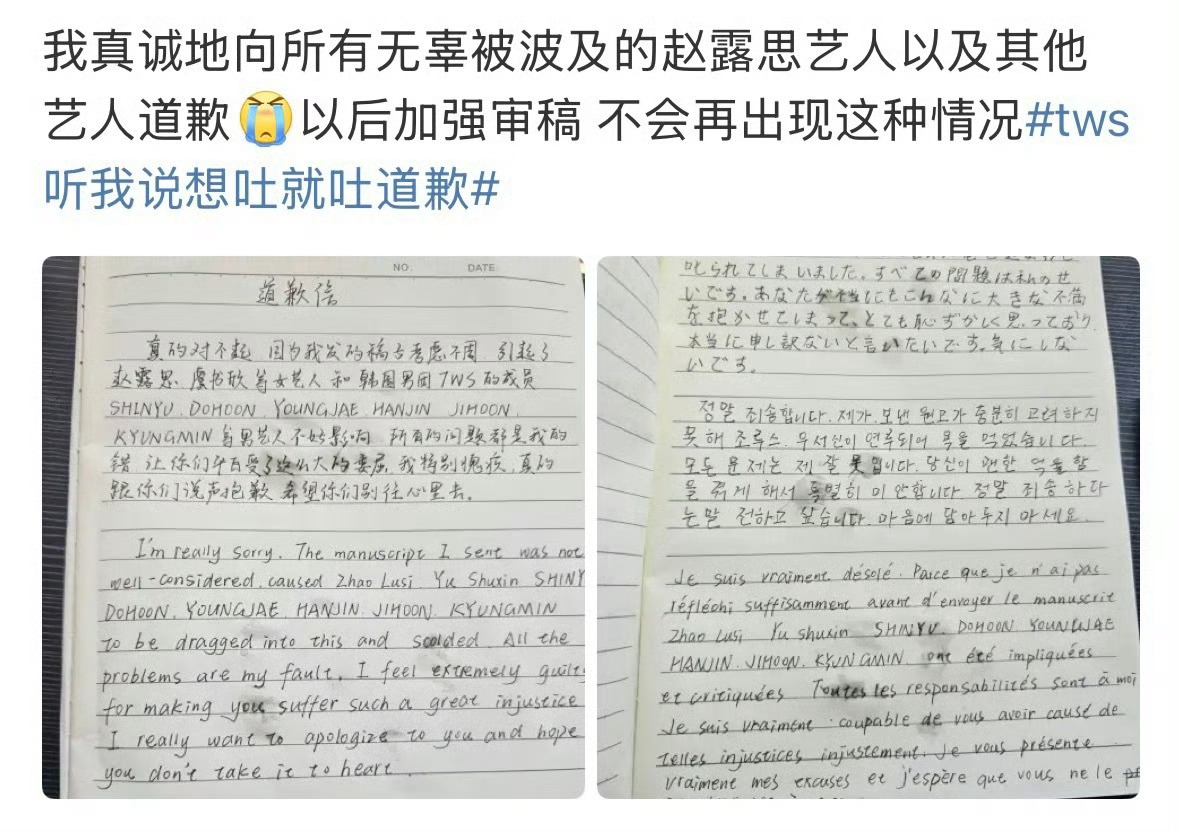 我真诚地向所有无辜被波及的赵露思艺人以及其他
艺人道歉😭以后加强审稿 不会再出现这种情况#tws
听我说想吐就吐道歉#
NO.
DATE
道歉信
真的对不起 因为我发的稿子考虑不周 引起了
赵露思 虞书欣等女艺人和韩国男团TWS的成员
SHINYU DOHOON YOUNGJAE HANJIN JIHOON
KYUNGMIN 等男艺人不好影响 所有的问题都是我的
错 让你们平白受了这么大的委屈 我特别愧疚,真的
跟你们说声抱歉 希望你们别往心里去。
I'm really sorry. The manuscript I sent was not
well-considered, caused Zhao Lusi Yu Shuxin SHINY
DOHOON. YOUNGJAE HANJIN JIHOON. KYUNGMIN
to be dragged into this and scolded. All the
problems are my fault, I feel extremely guilt
for making you suffer such a great injustice
I really want to apologize to you and hope
you don't take it to heart.
叱られてしまいました。すべての問題は私のせ
いです。あなたが不当にもこんなに大きな不満
を抱かせてしまって、とても恥ずかしく思っており
本当に申し訳ないと言いたいです。気にしな
いです。
정말 죄송합니다. 제가 보낸 원고가 충분히 고려하지
못해 조루스. 우서신이 연루되어 욕을 먹었습니다.
모든 문제는 제 잘못입니다. 당신이 억울함
을 겪게 해서 특별히 미안합니다 정말 죄송하다
는말 전하고 싶습니다. 마음에 담아두지 마세요.
Je suis vraiment désolé. Parce que je n'ai pas
réfléchi suffisamment avant d'envoyer le manuscrit
Zhao Lusi Yu shuxin SHINYU. DOHOON YOUNGJAE
HANJIN. JIHOON. KYUNGMIN. ont été impliquées
et critiquées Toutes les responsabilités sont à moi
Je suis vraiment coupable de vous avoir causé de
telles injustices injustement. Je vous présente
vraiment mes excuses et j'espère que vous ne le